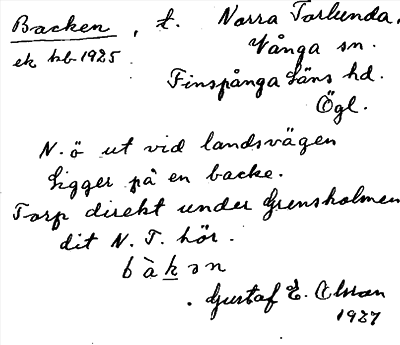 Backen, t. Norra Torlunda.
ek kb 1925. Vånga sn.
Finspånga läns hd.
Ögl.
N. ö ut vid landsvägen
Ligger på en backe.
Torp direkt under Grensholmen
dit N. T. hör.
bàkən
Gustaf E. Olsson
1927